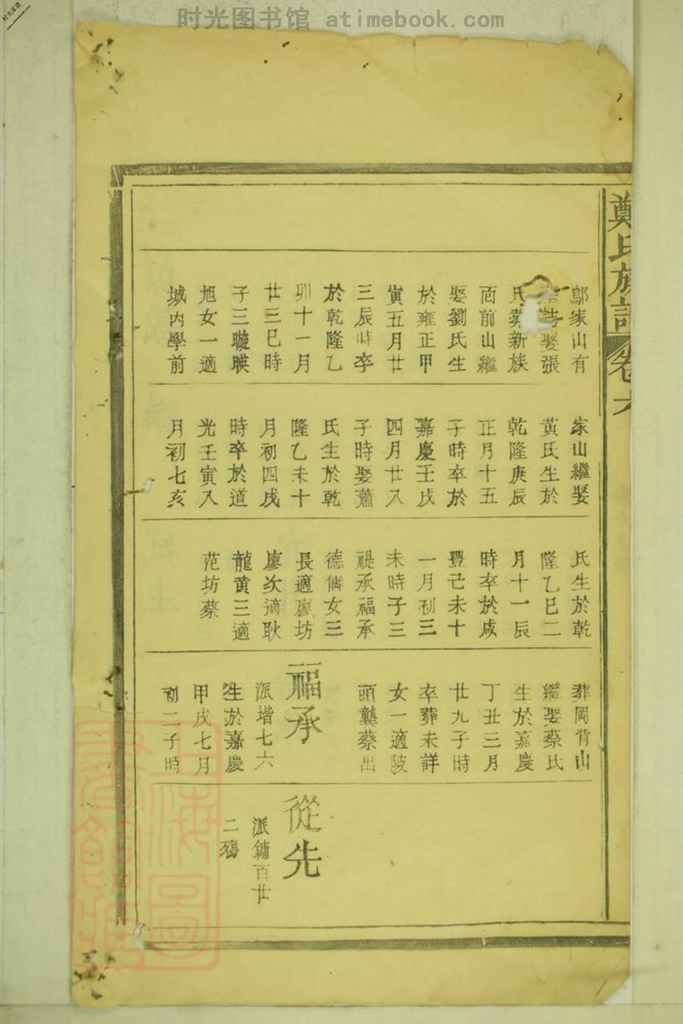 时光图书馆 atimebook.com
鄭氏族譜 卷六
鄔家山有
娶張
氏葬新族
面前山繼
娶劉氏生
於雍正甲
寅五月廿
三辰時卒
於乾隆乙
卯十一月
廿三巳時
子三璇暎
旭女一適
城內學前
家山繼娶
黃氏生於
乾隆庚辰
正月十五
子時卒於
嘉慶壬戌
四月廿八
子時娶蕭
氏生於乾
隆乙未十
月初四戌
時卒於道
光壬寅八
月初七亥
氏生於乾
隆乙巳二
月十一辰
時卒於咸
豐己未十
一月初三
未時子三
禔承福承
德備女三
長適廖坊
廖次適耿
龍黃三適
范坊蔡
葬岡背山
繼娶蔡氏
生於嘉慶
丁丑三月
廿九子時
卒葬未詳
女一適陂
頭龔蔡出
福承
派堦七六
生於嘉慶
甲戌七月
初二子時
從先
派鏞百廿
二殤